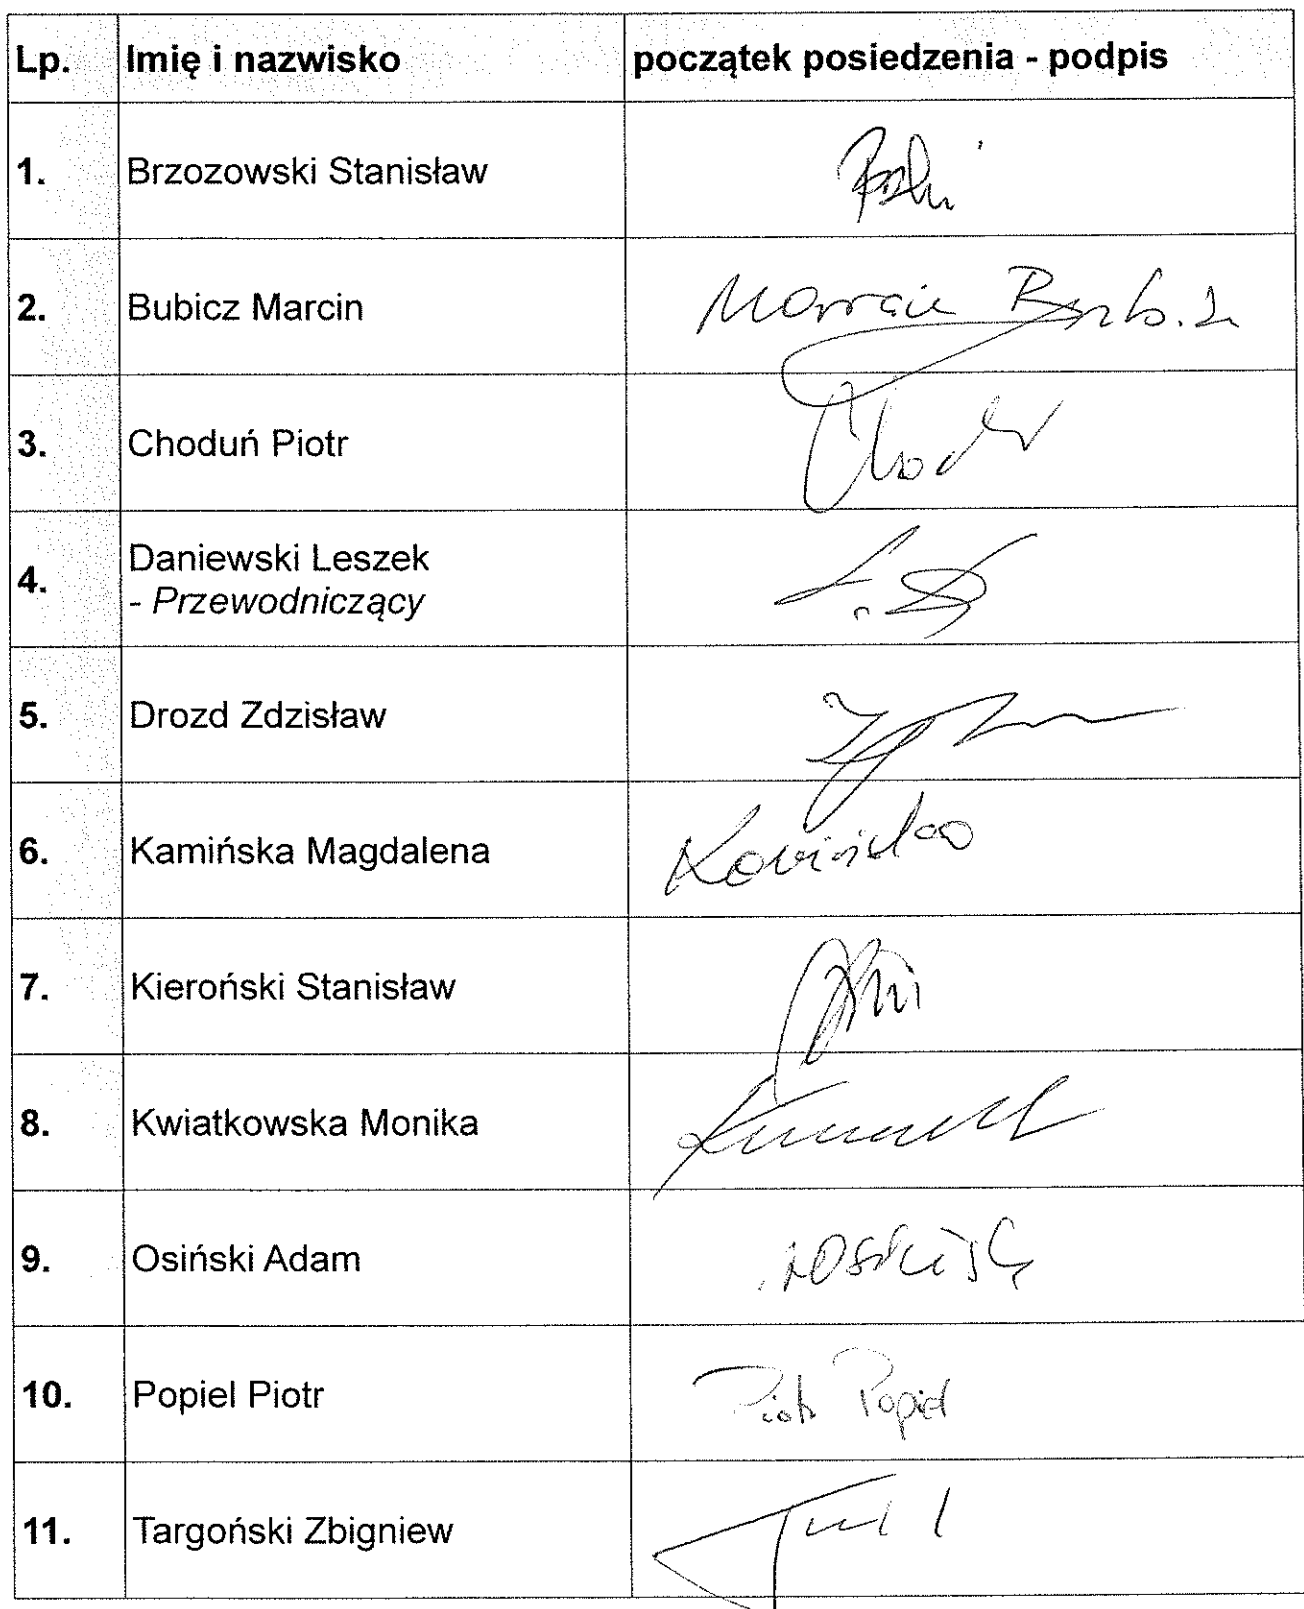 Lp. Imię i nazwisko początek posiedzenia - podpis
1. Brzozowski Stanisław
2. Bubicz Marcin Marcin
3. Choduń Piotr
4. Daniewski Leszek
- Przewodniczący
5. Drozd Zdzisław
6. Kamińska Magdalena
7. Kieroński Stanisław
8. Kwiatkowska Monika
9. Osiński Adam
10. Popiel Piotr Piotr Popiel
11. Targoński Zbigniew